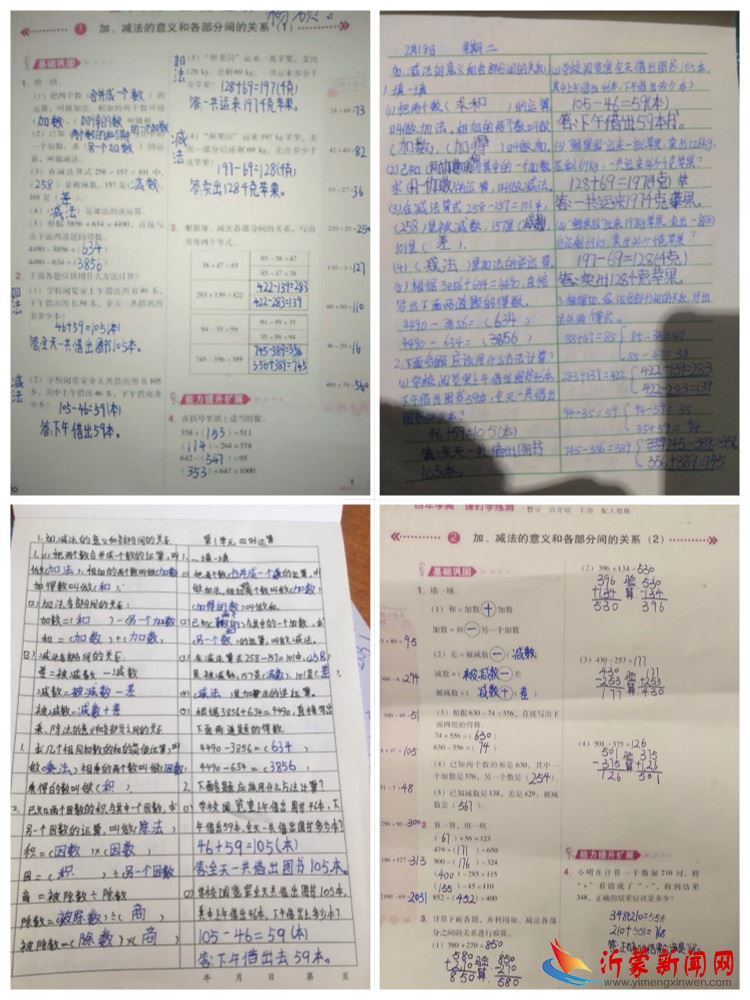 1 加、减法的意义和各部分间的关系（1）
基础巩固
1. 填一填。
（1）把两个数（合并成一个数）的
运算，叫做加法。相加的两个数叫做
（3）“鲜果园”运来一批苹果，卖出
128 kg，还剩69 kg，一共运来多少千
克苹果？
加法
128+69=197(千克)
答:一共运来197千克苹果。
（4）“鲜果园”运来197 kg苹果，卖
减法
197-69=128(千克)
答:卖出128千克苹果。
（3）在减法算式258－157＝101中，
（258）是被减数，157是（减数），
101是（差）。
（4）（减法）是加法的逆运算。
（5）根据3856＋634＝4490，直接写
出下面两道题的得数。
4490－3856＝（634）
4490－634＝（3856）
2. 下面各题应该用什么方法计算？
（1）学校阅览室上午借出图书46本，
下午借出图书59本，全天一共借出图
书多少本？
加法
46+59=105(本)
答:全天一共借出图书105本。
（2）学校阅览室全天共借出图书105
本，其中上午借出46本，下午借出多
少本？
减法
105-46=59(本)
答:下午借出59本。
3. 根据加、减法各部分间的关系，写出
另外两个算式。
38＋47＝85
85－38＝47
85－47＝38
283＋139＝422
422-139=283
422-283=139
94－35＝59
94－59＝35
35＋59＝94
745－356＝389
745-389=356
356+389=745
能力提升扩展
4. 在括号里填上适当的数。
358＋（153）＝511
（114）＋264＝378
642－（547）＝95
（353）＋647＝1000
1
2月18日 星期二
加、减法的意义和各部分间的关系
1.填一填
(1)把两个数(求和)的运算
叫做加法。相加的两个数叫做
(加数)，(加得)叫做和。
(3)在减法算式258-157=101中，
(258)是被减数，157是(减数)
101是(差)。
(4)(减法)是加法的逆运算。
(5)根据3856+634=4490，直接
写出下面两道题的得数。
4490-3856=(634)
4490-634=(3856)
2.下面各题应该用什么方法计算？
(1)学校阅览室上午借出图书46本，
下午借出图书59本，全天一共借出
图书多少本？
46+59=105(本)
105本。
(2)学校阅览室全天借出图书105本，
其中上午借出46本，下午借出多少本？
105-46=59(本)
答:下午借出59本书。
128+69=197(千克)
答:一共运来197千克苹果。
197-69=128(千克)
答:卖出128千克苹果。
38+47=85 85-38=47
85-47=38
283+139=422 422-139=283
422-283=139
94-35=59 94-59=35
35+59=94
745-356=389 745-389=356
356+389=745
1.加、减法的意义和各部分间的关系
1.(1)把两个数合并成一个数的运算，叫
做(加法)，相加的两个数叫做(加数)
加得数叫做(和)。
(2)加法各部分间的关系：
加数=(和)-另一个加数
和=(加数)+(加数)
(3)减法各部分间的关系：
差=被减数-减数
减数=被减数-差
被减数=减数+差
乘、除法的意义和各部分之间的关系
1.求几个相同加数的和的简便运算，叫
做(乘法)相乘的两个数叫做(因数)，
乘得的数叫做(积)。
2.已知两个因数的积与其中一个因数，求
另一个因数的运算，叫做(除法)
积=(因数)×(因数)
因=(积)÷另一个因数
商=被除数÷除数
除数=(被除数)÷(商)
被除数=(除数)×(商)
第1单元 四则运算
一、填一填
(1)把两个数(合并成一个数)的运算，叫
做加法，相加的两个数叫做(加数)
(加得的数)叫做和。
(另一个加数)的运算，叫做减法。
(3)在减法算式258-157=101中，(258)
是被减数，157是(减数)，101是(差)。
(4)(减法)是加法的逆运算。
(5)根据3856+634=4490，直接写出
下面两道题的得数
4490-3856=(634)
4490-634=(3856)
2.下面各题应该用什么方法计算？
(1)学校阅览室上午借出图书46本，下
午借出59本，全天一共借出图书多少本？
46+59=105(本)
答:全天一共借出图书105本。
(2)学校阅览室全天共借出图书105本，
其中上午借出46本，下午借出多少本？
105-46=59(本)
答:下午借出去59本。
年 月 日 第 页
课时学练测
数学 四年级 下册 配人教版
2 加、减法的意义和各部分间的关系（2）
基础巩固
1. 填一填。
（1）和＝加数(+)加数
加数＝和(−)另一个加数
（2）差＝被减数(−)（减数）
减数＝（被减数(−)差）
被减数＝（减数(+)差）
（3）根据630－74＝556，直接写出下
面两题的得数。
74＋556＝（630）
630－556＝（74）
（4）已知两个数的和是630，其中一
个加数是376，另一个是（254）。
（5）已知减数是138，差是429，被减
数是（567）。
2. 算一算，填一填。
（67）＋56＝123
479＋（171）＝650
500－（176）＝324
（400）－285＝115
（155）－45＝110
852－（452）＝400
3. 计算下面各题，并利用加、减法各部
分之间的关系进行验算。
（1）580＋270＝850
（2）396＋134＝530
（3）430－253＝177
（4）501－375＝126
能力提升扩展
4. 小明在计算一个数加210时，将
“＋”看错成了“－”，得到结果
348，正确的结果应该是多少？
348+210=558
210+558=768
沂蒙新闻网
www.yimengxinwen.com